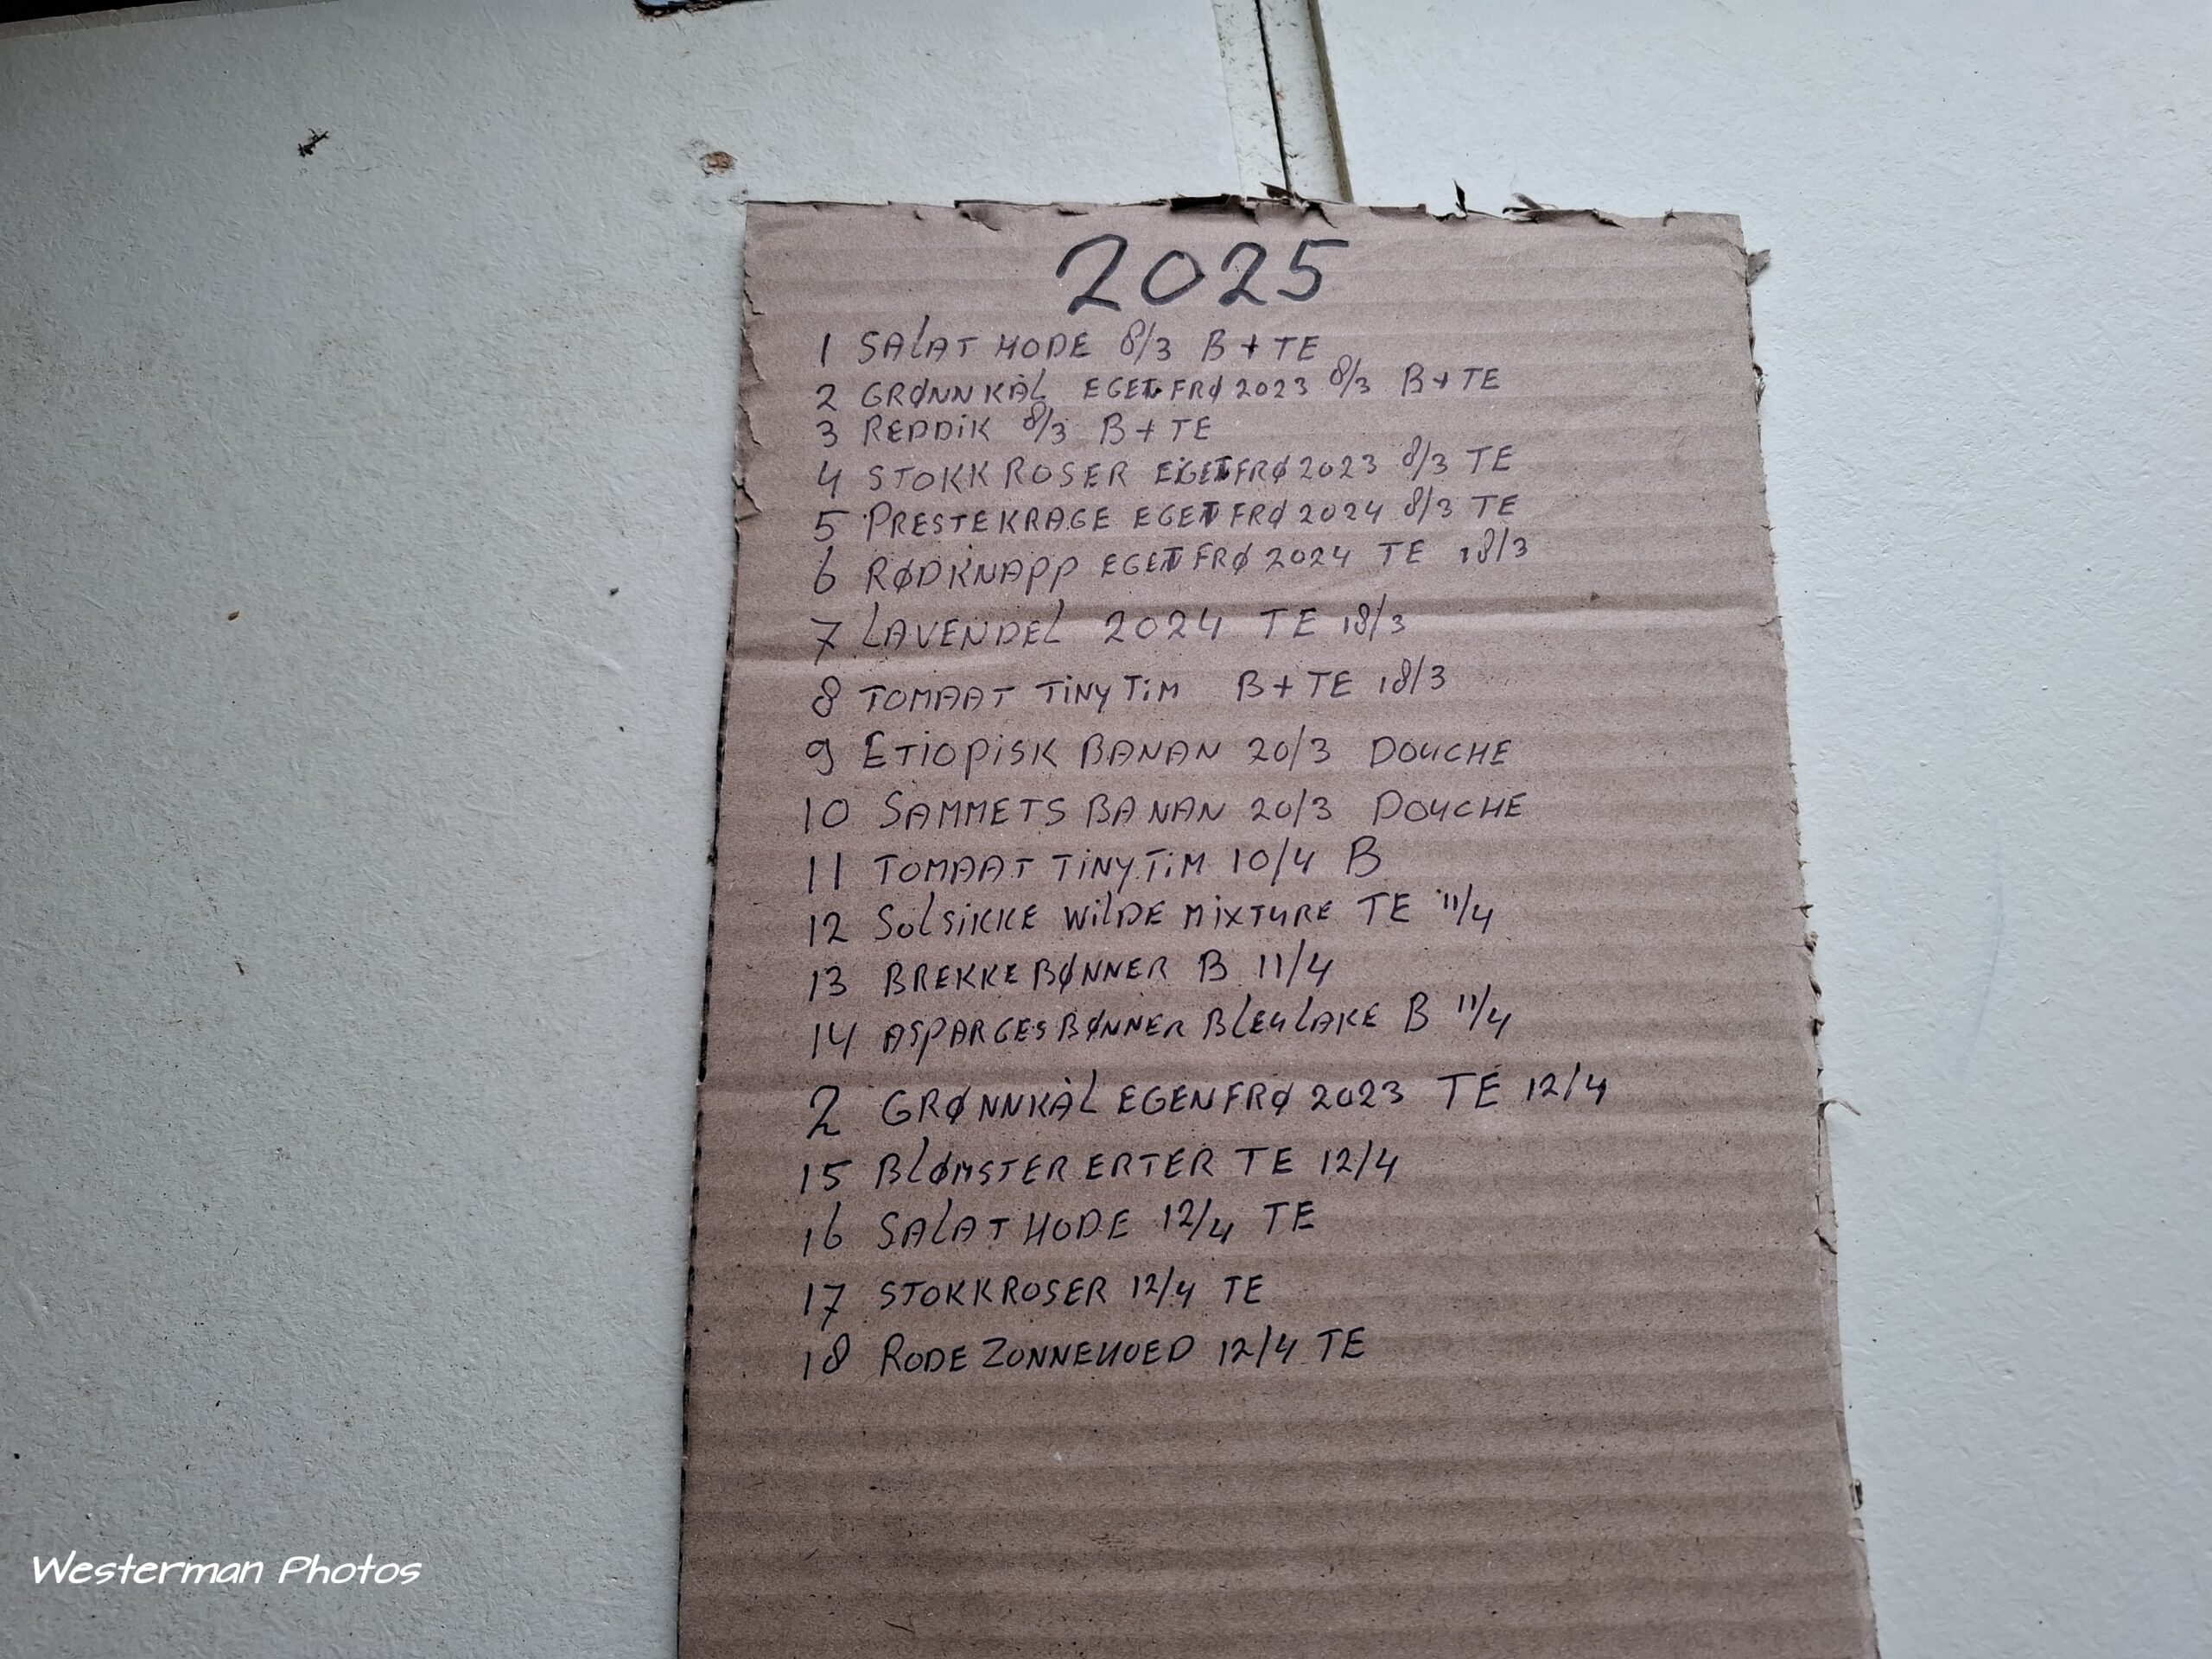 2025
1 SALAT HODE 8/3 B + TE
2 GRØNNKÅL EGEN FRØ 2023 8/3 B + TE
3 REDDIK 8/3 B + TE
4 STOKKROSER EGEN FRØ 2023 8/3 TE
5 PRESTEKRAGE EGEN FRØ 2024 8/3 TE
6 RØDKNAPP EGEN FRØ 2024 TE 18/3
7 LAVENDEL 2024 TE 18/3
8 TOMAAT TINY TIM B + TE 18/3
9 ETIOPISK BANAN 20/3 DOUCHE
10 SAMMETS BANAN 20/3 DOUCHE
11 TOMAAT TINY TIM 10/4 B
12 SOLSIKKE WILDE MIXTURE TE 11/4
13 BREKKEBØNNER B 11/4
14 ASPARGESBØNNER BLEULAKE B 11/4
2 GRØNNKÅL EGEN FRØ 2023 TE 12/4
15 BLØMSTER ERTER TE 12/4
16 SALAT HODE 12/4 TE
17 STOKKROSER 12/4 TE
18 RODE ZONNEHOED 12/4 TE
Westerman Photos